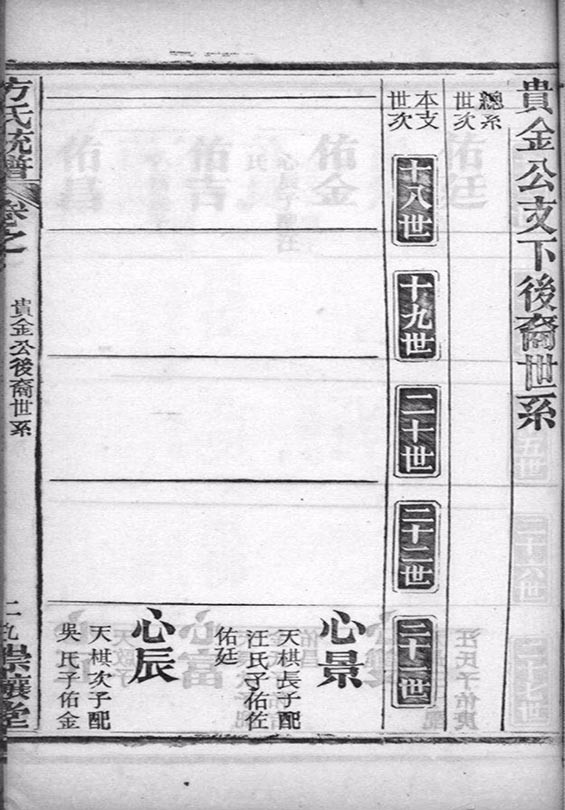 貴金公支下後裔世系
總系
世次
本支
世次
十八世
十九世
二十世
二十二世
二十三世
心景
天棋長子配
汪氏子佑佐
佑廷
心辰
天棋次子配
吳氏子佑金
方氏統譜
卷之
貴金公後裔世系
二九
崇讓堂